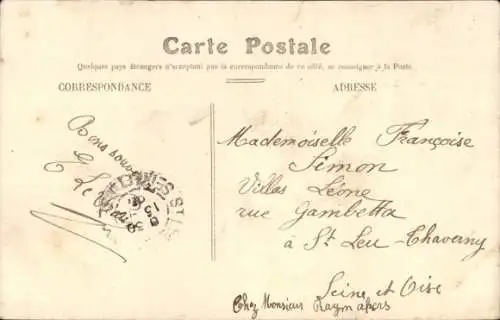 Carte Postale
Quelques pays étrangers n'acceptant pas la correspondance de ce côté, se renseigner à la Poste.
CORRESPONDANCE
ADRESSE
Bons
Mademoiselle Françoise
Simon
Villas Léone
rue Gambetta
à St Leu-Chaverny
Seine et Oise
Chez Monsieur